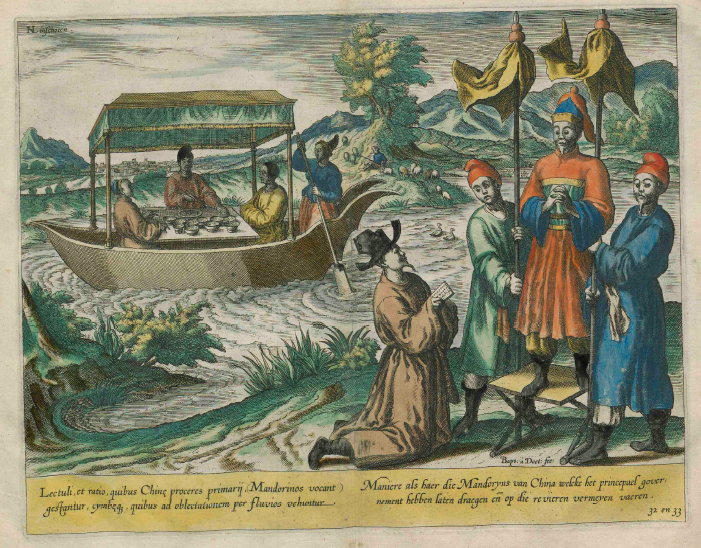 N. inschoten.
Bapt. à Doet: fe:
Lectuli, et ratio, quibus Chinę proceres primarij (Mandorinos vocant)
gestantur, cymbęq;, quibus ad oblectationem per fluvios vehuntur.
Maniere als haer die Mandoryns van China welcke het princepael gover-
nement hebben laten draegen eñ op die revieren vermeyen vaeren.
32 en 33